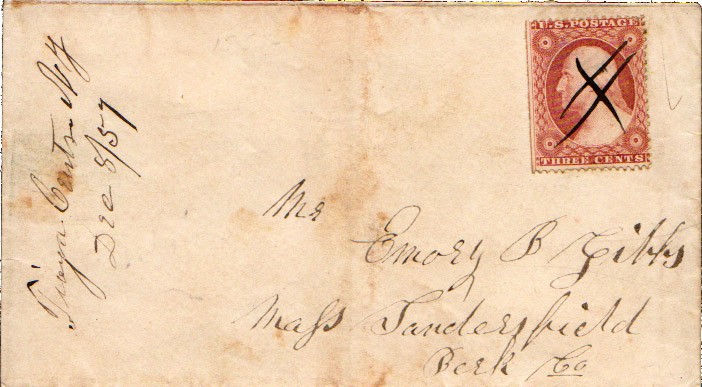 Tioga Centre NY
Dec 8/57
U.S. POSTAGE
THREE CENTS
Mr
Emory B Gibbs
Mass Sandersfield
Berk Co